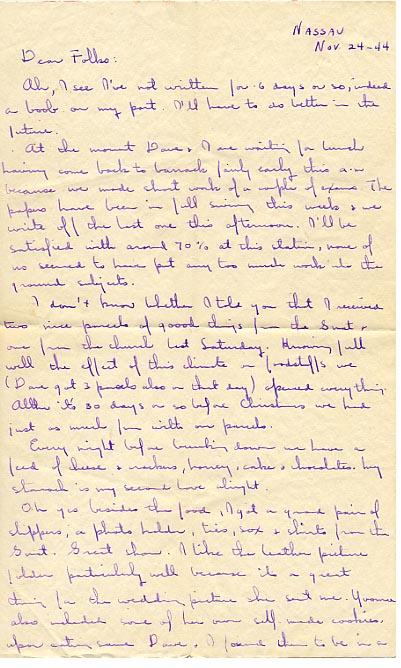 Nassau
Nov. 24-44
Dear Folks:
Ah, I see I've not written for 6 days or so, indeed
a boob on my part. I'll have to do better in the
future.
At the moment Dave & I are waiting for lunch
having come back to barracks fairly early this a.m
because we made short work of a couple of exams. The
papers have been in full swing this week & we
write off the last one this afternoon. I'll be
satisfied with around 70% at this station, none of
us seemed to have put any too much work into the
ground subjects.
I don't know whether I told you that I received
two nice parcels of goood things from the &
one from the church last Saturday. Knowing full
well the effect of this climate on foodstuffs we
(Dave got 3 parcels also on that day) opened everything.
Altho' it's 30 days or so before Christmas we had
just as much fun with our parcels.
Every night before breaking down we have a
feed of cheese & crackers, honey, cake & chocolates. My
stomach is my second love alright.
Oh yes besides the food, I got a grand pair of
slippers, a photo holder, ties, sox & shirts from the
Great show. I like the leather picture
folder particularly well because it's a great
thing for the wedding picture she sent me. Yvonne
also included some of her own self made cookies,
upon eating same Dave & I found them to be in a